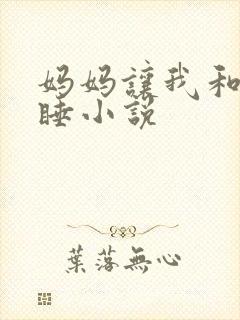 妈妈讓我和
睡小說
葉落無心